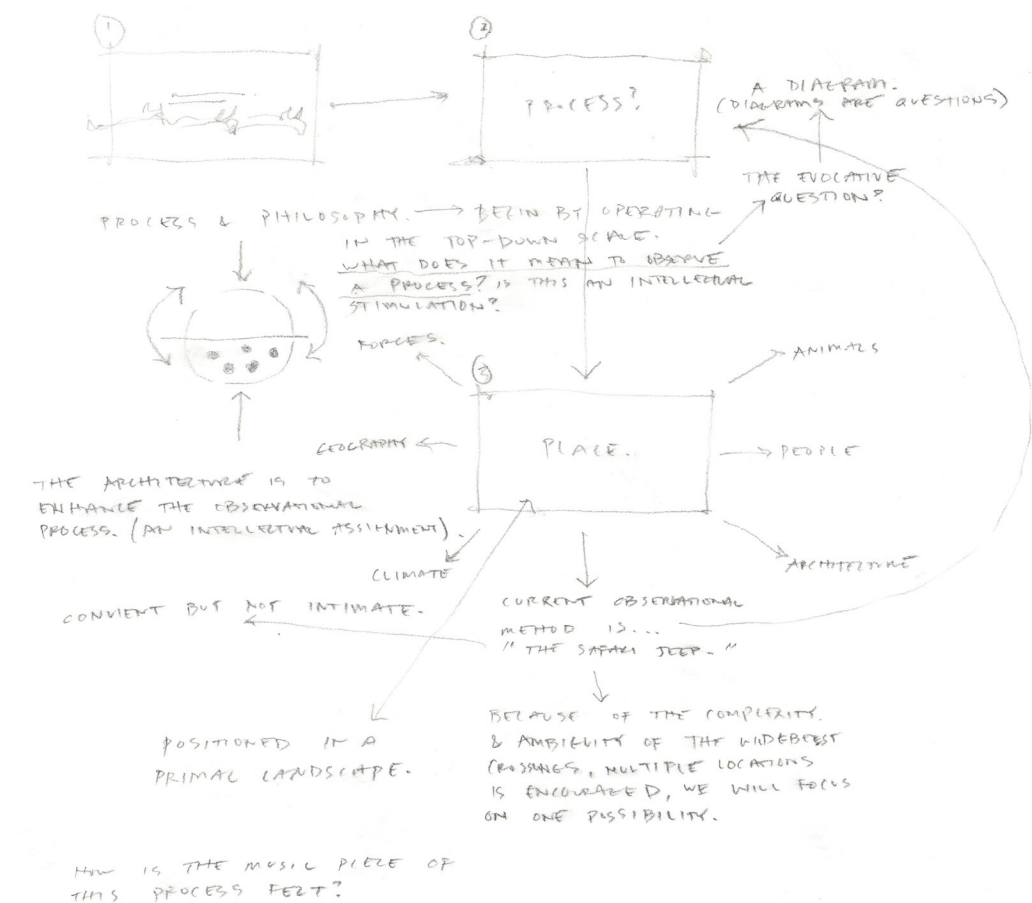 1
2
PROCESS?
A DIAGRAM.
(DIAGRAMS ARE QUESTIONS)
THE EVOCATIVE
QUESTION?
PROCESS & PHILOSOPHY. → BEGIN BY OPERATING
IN THE TOP-DOWN SCALE.
WHAT DOES IT MEAN TO OBSERVE
A PROCESS? IS THIS AN INTELLECTUAL
STIMULATION?
FORCES.
3
ANIMALS
GEOGRAPHY
PLACE.
PEOPLE
THE ARCHITECTURE IS TO
ENHANCE THE OBSERVATIONAL
PROCESS. (AN INTELLECTUAL ASSIGNMENT).
CLIMATE
ARCHITECTURE
CONVIENT BUT NOT INTIMATE.
CURRENT OBSERVATIONAL
METHOD IS...
"THE SAFARI JEEP."
POSITIONED IN A
PRIMAL LANDSCAPE.
BECAUSE OF THE COMPLEXITY.
& AMBIGUITY OF THE WIDEBEEST
CROSSINGS, MULTIPLE LOCATIONS
IS ENCOURAGED, WE WILL FOCUS
ON ONE POSSIBILITY.
HOW IS THE MUSIC PIECE OF
THIS PROCESS FELT?